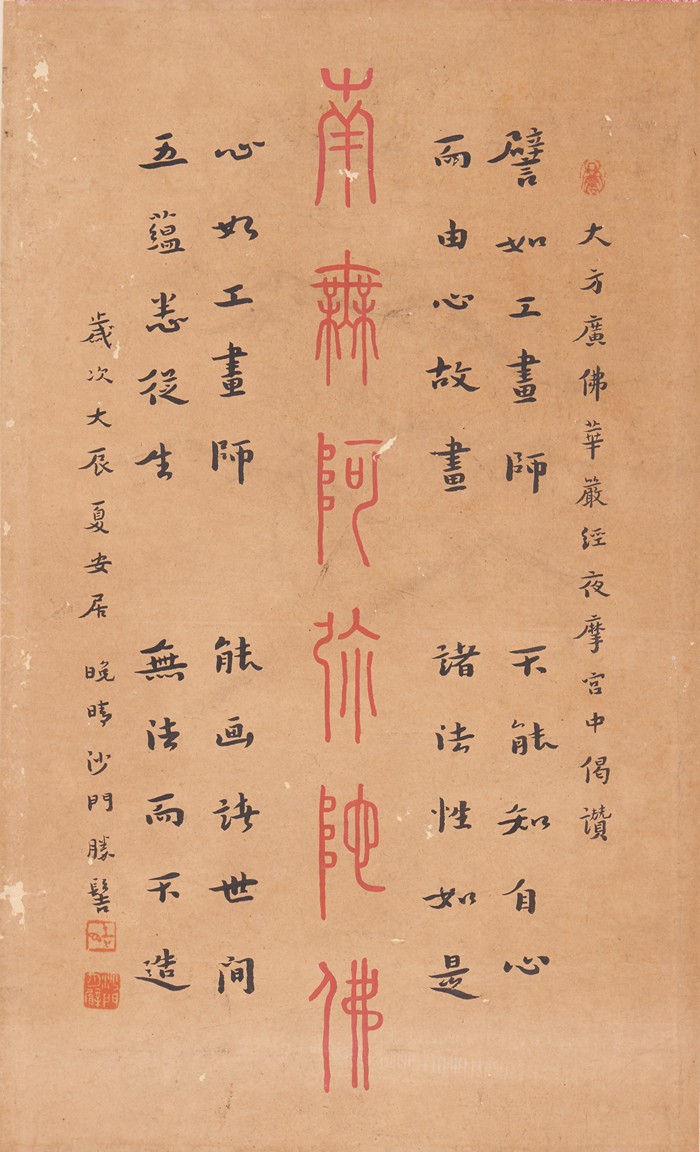 大方廣佛華嚴經夜摩宮中偈讚
譬如工畫師 不能知自心
而由心故畫 諸法性如是
南無阿弥陀佛
心如工畫師 能画諸世間
五蘊悉從生 無法而不造
歲次大辰夏安居 晚晴沙門勝髻